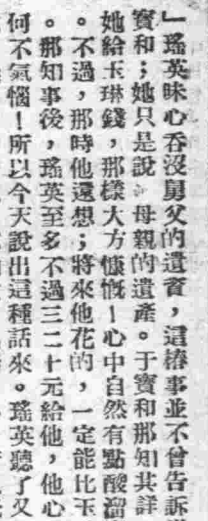 」瑤英昧心吞沒舅父的遺資，這樁事並不曾告訴
寶和；她只是說 母親的遺產。于寶和那知其詳
她給玉琳錢，那樣大方慷慨！心中自然有點酸溜
。不過，那時他還想；將來他花的，一定能比玉
。那知事後，瑤英至多不過三二十元給他，他心
何不氣惱！所以今天說出這種話來。瑤英聽了又